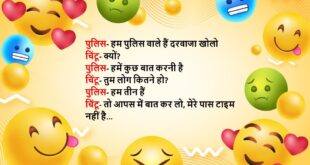 पुलिस- हम पुलिस वाले हैं दरवाजा खोलो
चिंटू- क्यों?
पुलिस- हमें कुछ बात करनी है
चिंटू- तुम लोग कितने हो?
पुलिस- हम तीन हैं
चिंटू- तो आपस में बात कर लो, मेरे पास टाइम
नहीं है...